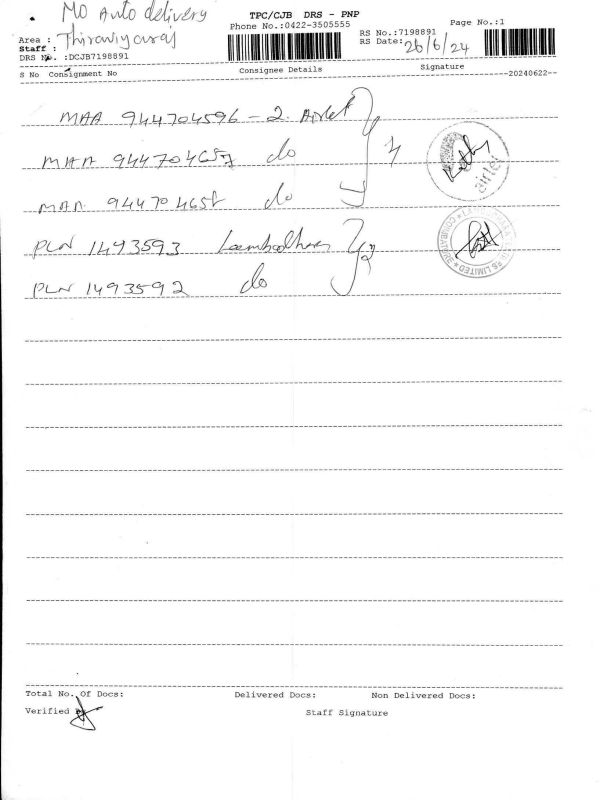 MO Auto delivery
TPC/CJB DRS - PNP
Phone No.:0422-3505555
Page No.:1
RS No.:7198891
RS Date: 26/6/24
Area :
Staff :
DRS No. :DCJB7198891
S No Consignment No Consignee Details Signature
--20240622--
MAA 944704596 - 2 Airtel
MAA 944704657 do
MAA 944704658 do
airtel
PLN 1493593
PLN 1493592 do
2
LIMITED * COIMBATORE *
Total No. Of Docs: Delivered Docs: Non Delivered Docs:
Verified
Staff Signature